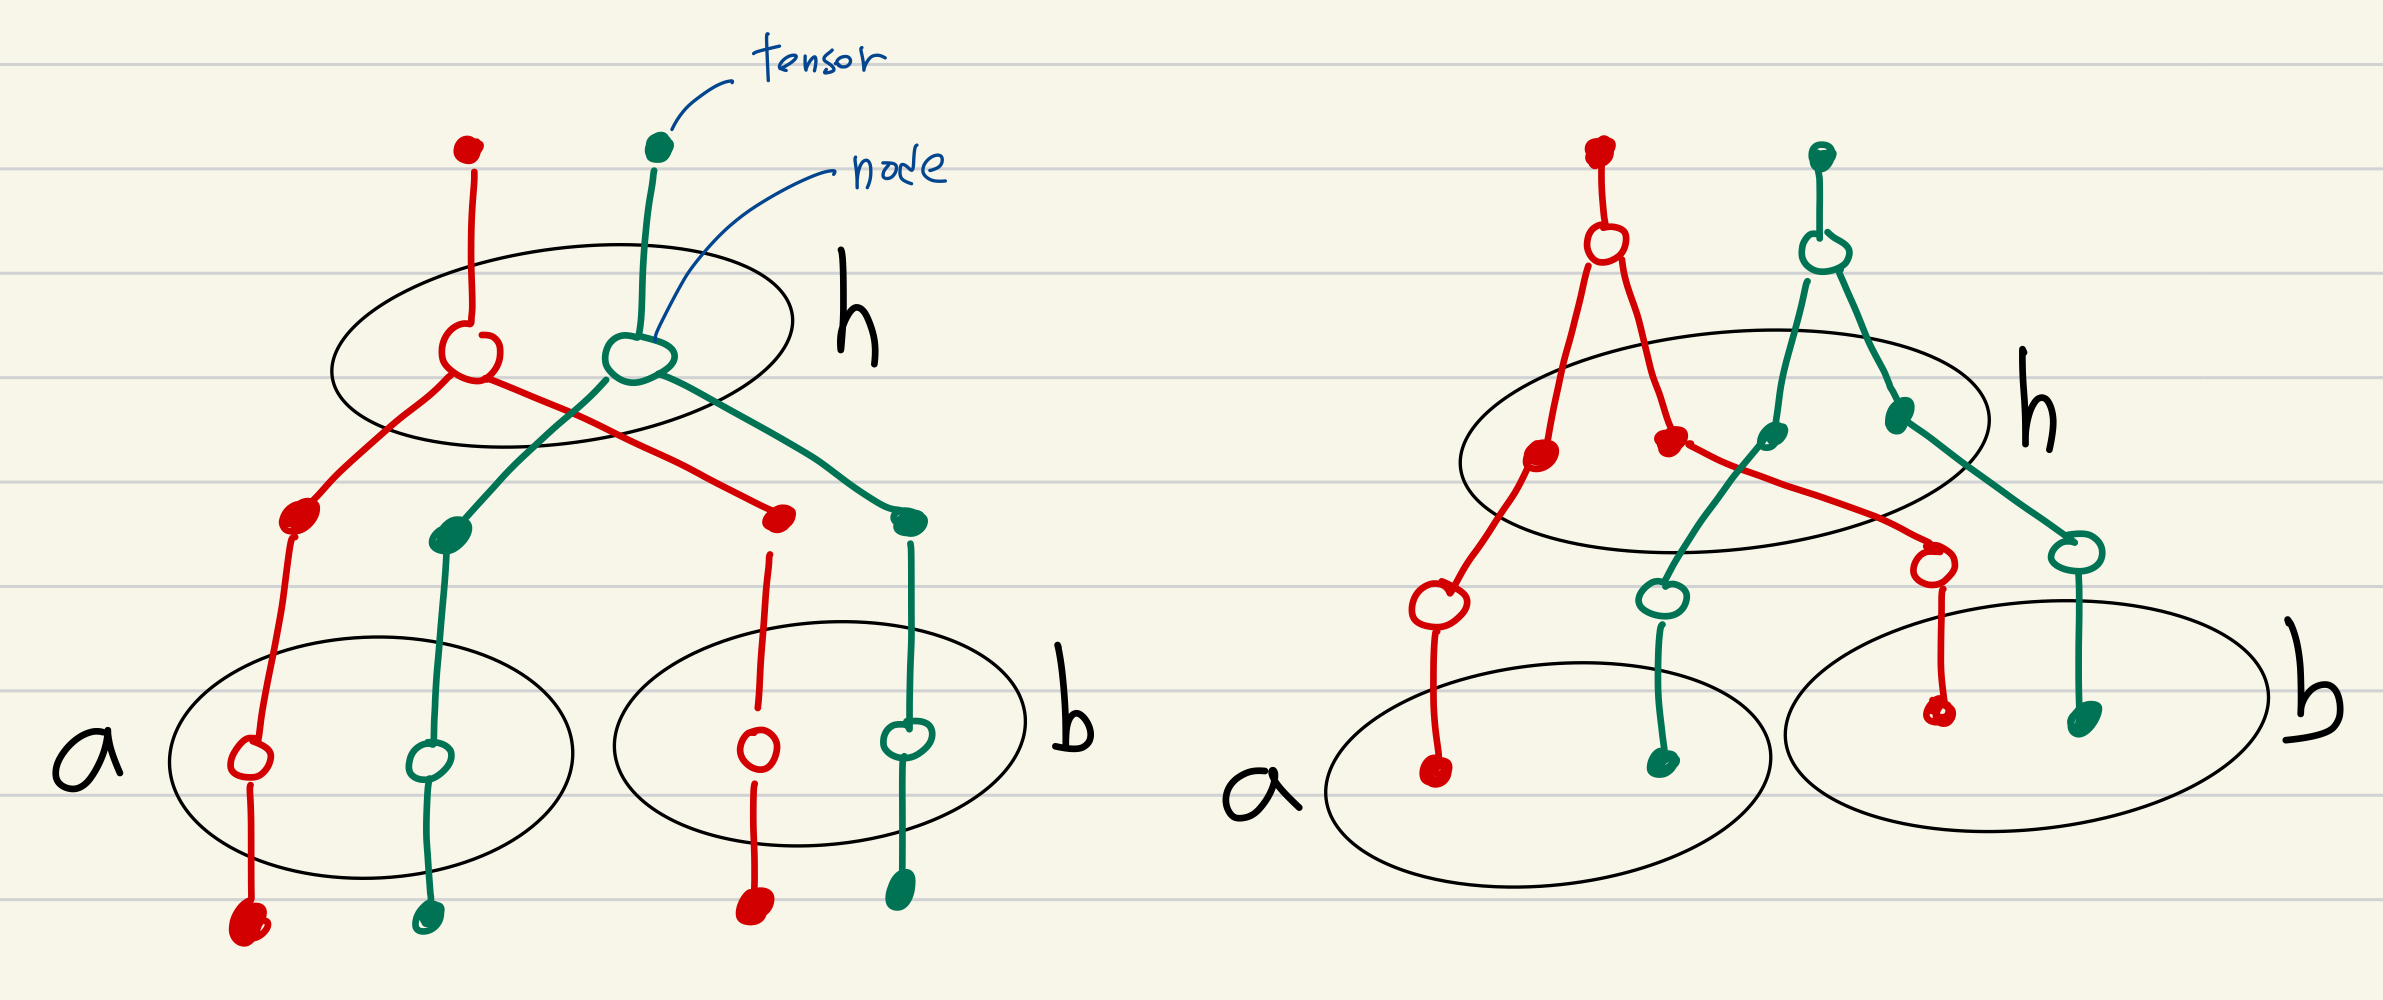 tensor
node
h
h
a
b
a
b